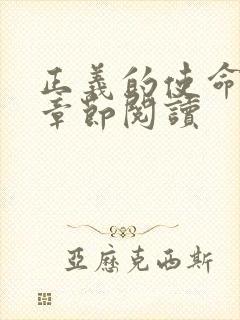 正義的使命
章節閱讀
亞歷克西斯